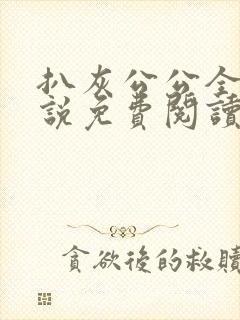 扒灰公公全
說免費閱讀
貪欲後的救贖